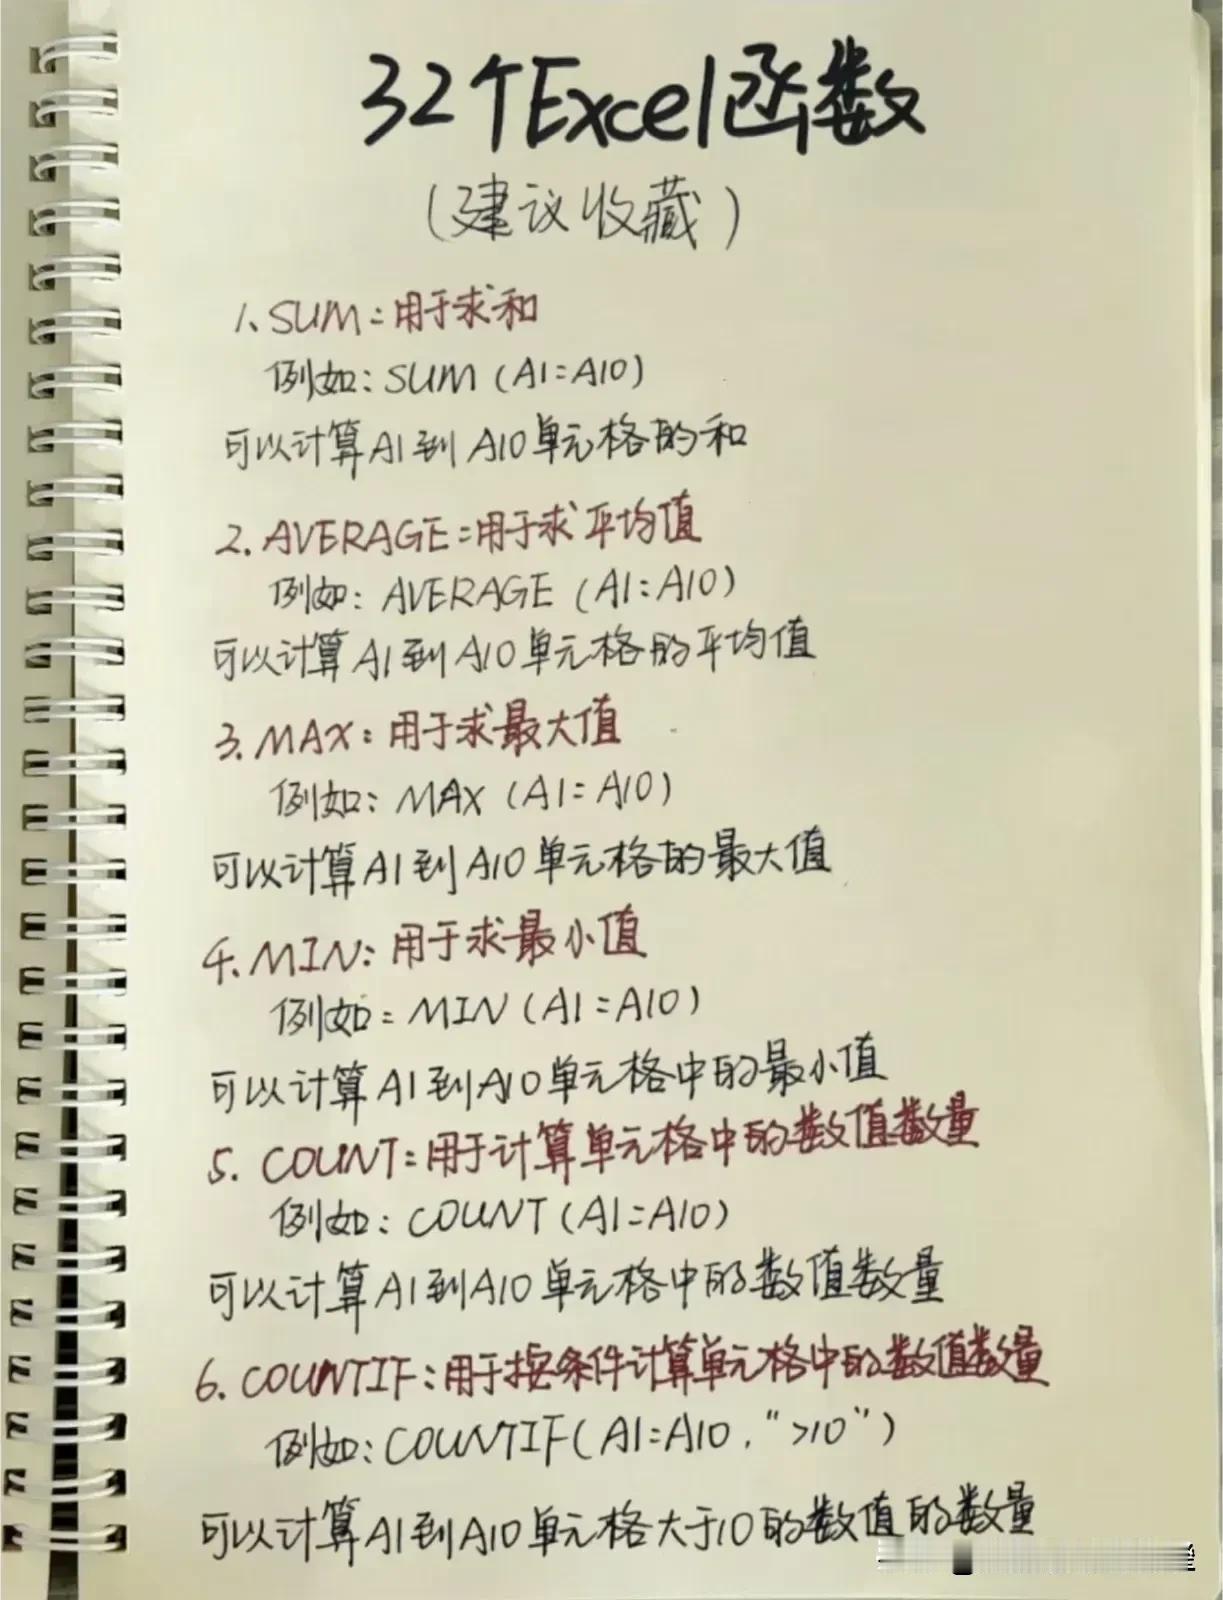 32个Excel函数
(建议收藏)
1、SUM:用于求和
例如:SUM(A1:A10)
可以计算A1到A10单元格的和
2.AVERAGE:用于求平均值
例如:AVERAGE(A1:A10)
可以计算A1到A10单元格的平均值
3.MAX:用于求最大值
例如:MAX(A1:A10)
可以计算A1到A10单元格的最大值
4.MIN:用于求最小值
例如:MIN(A1:A10)
可以计算A1到A10单元格中的最小值
5.COUNT:用于计算单元格中的数值数量
例如:COUNT(A1:A10)
可以计算A1到A10单元格中的数值数量
6.COUNTIF:用于按条件计算单元格中的数值数量
例如:COUNTIF(A1:A10,">10")
可以计算A1到A10单元格大于10的数值的数量